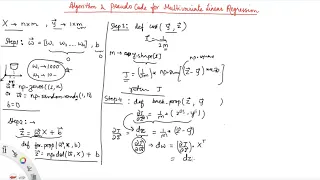 Algorithm & Pseudo Code for Multivariate Linear Regression
X → n×m, ŷ → 1×m
Step 1: w = [w₁, w₂ ...], b
w₁ → 1000
w₂ →
np.zeros(1, n)
np.random.randn(1, n)
b = 0
Step 2: →
z = wX + b
def for_prop(w, x, b)
z = np.dot(w, x) + b
Step 3: def cost(z, y)
m → y.shape[1]
J = (1/2m) * np.sum[(z - y)²]
np.square
return J
Step 4: def back_prop(z, y)
∂J/∂z = dz = 1/m * (z - y)
∂J/∂w → dw = (∂J/∂z) . Xᵀ
= dz.